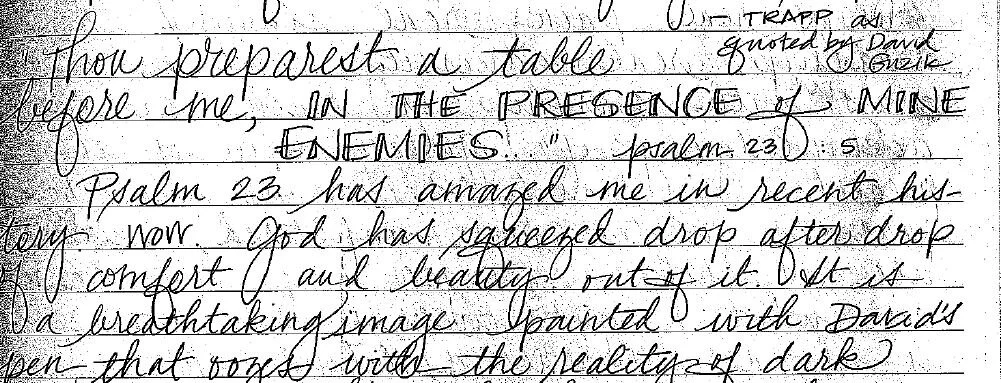 of
— TRAPP as
quoted by David
Guzik
"Thou preparest a table
before me, IN THE PRESENCE of MINE
ENEMIES..." psalm 23:5
Psalm 23 has amazed me in recent his-
tory now. God has squeezed drop after drop
of comfort and beauty out of it. It is
a breathtaking image painted with David's
pen that oozes with the reality of dark